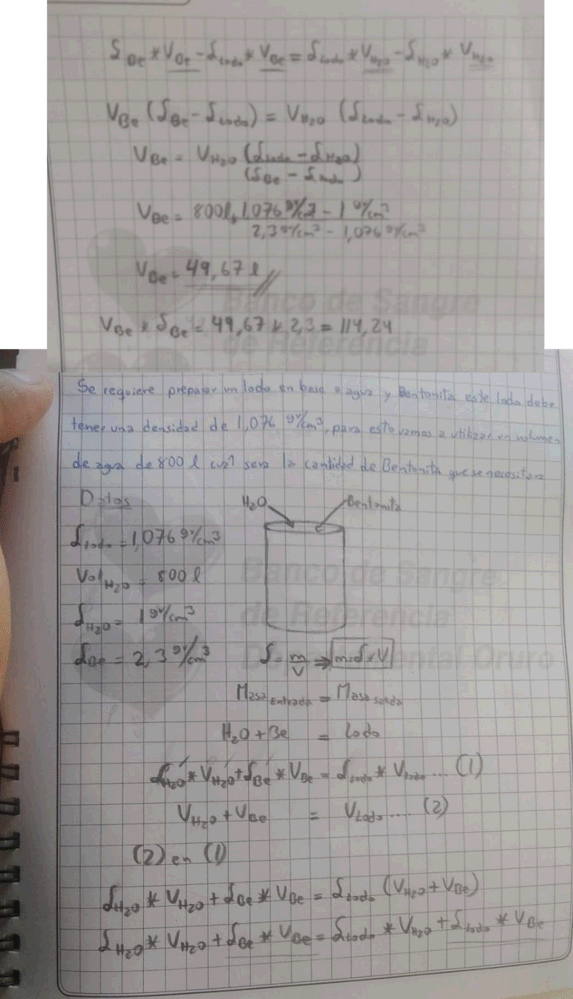 δBe * VBe - δLodo * VBe = δLodo * VH2O - δH2O * VH2O
VBe (δBe - δLodo) = VH2O (δLodo - δH2O)
VBe = VH2O (δLodo - δH2O)
(δBe - δLodo)
VBe = 800 l * 1,076 gr/cm3 - 1 gr/cm3
2,3 gr/cm3 - 1,076 gr/cm3
VBe = 49,67 l
VBe * δBe = 49,67 * 2,3 = 114,24
Banco de Sangre
de Referencia
Se requiere preparar un lodo en base a agua y Bentonita este lodo debe
tener una densidad de 1,076 gr/cm3, para esto vamos a utilizar un volumen
de agua de 800 l cual sera la cantidad de Bentonita que se necesitara
Datos
H2O Bentonita
δLodo = 1,076 gr/cm3
Vol H2O = 800 l
δH2O = 1 gr/cm3
δBe = 2,3 gr/cm3
Banco de Sangre
de Referencia
Departamental Oruro
δ = m/V ⇒ m = δ * V
Masa entrada = Masa salida
H2O + Be = Lodo
δH2O * VH2O + δBe * VBe = δLodo * VLodo .... (1)
VH2O + VBe = VLodo .... (2)
(2) en (1)
δH2O * VH2O + δBe * VBe = δLodo (VH2O + VBe)
δH2O * VH2O + δBe * VBe = δLodo * VH2O + δLodo * VBe